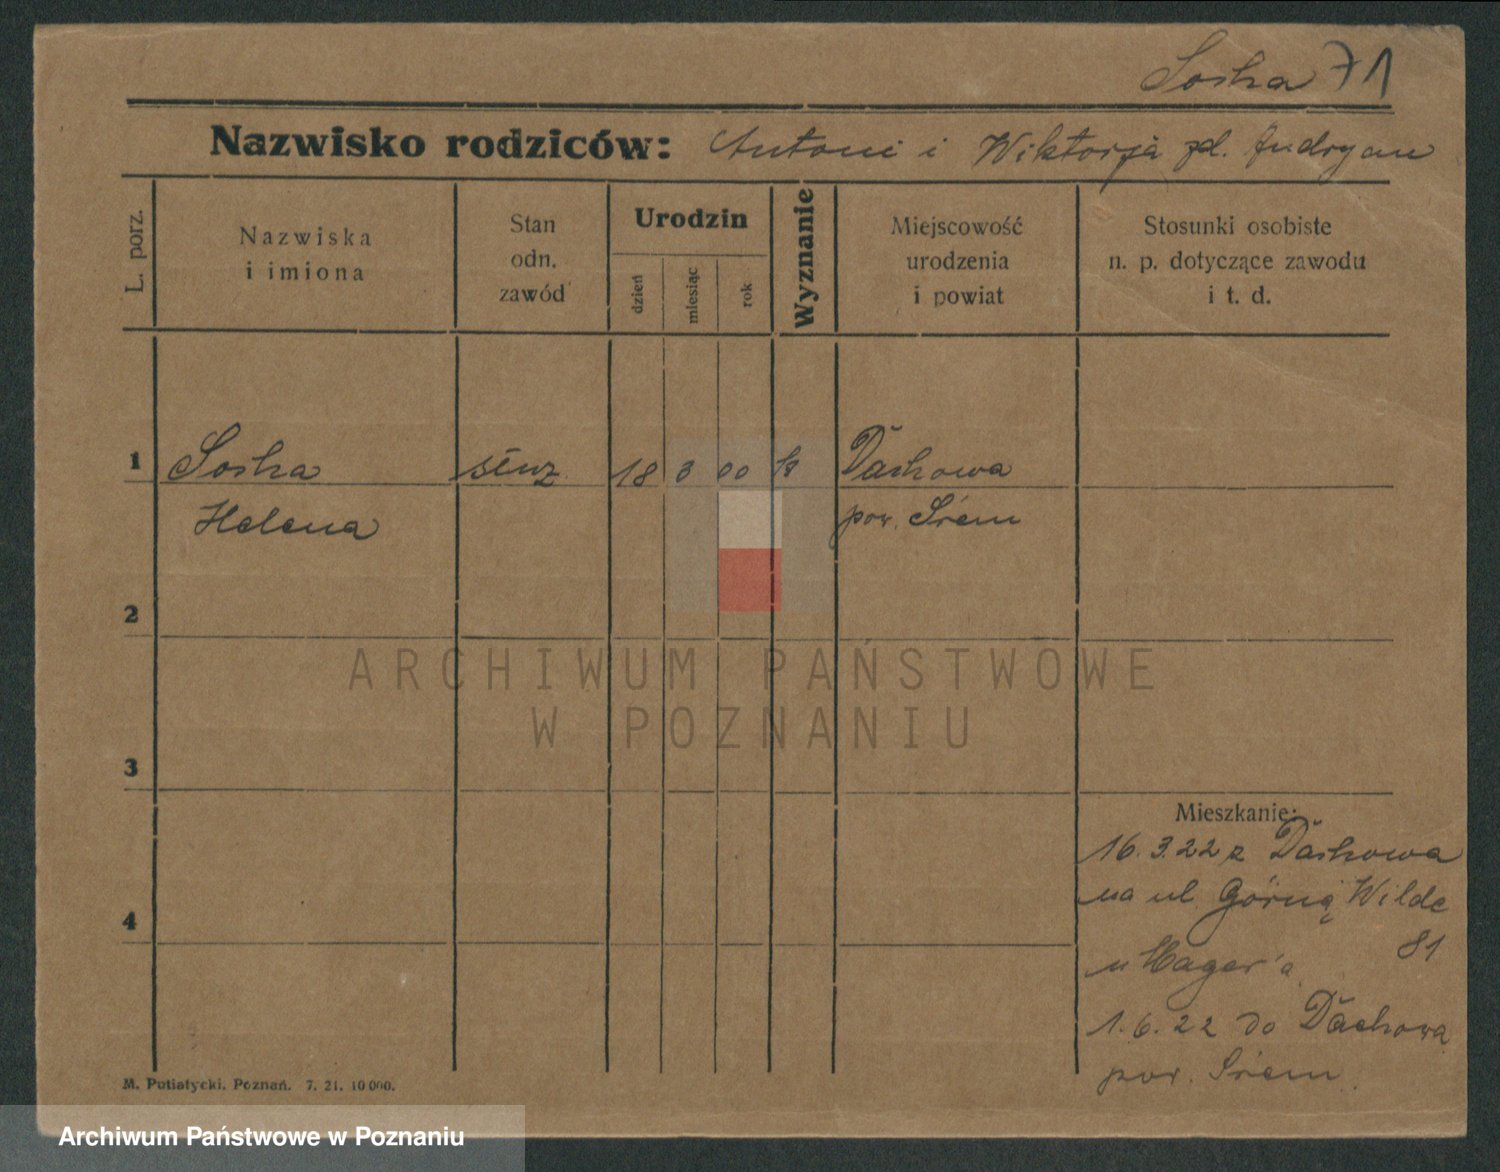 Soska 71
Nazwisko rodziców: Antoni i Wiktorja zd. Andryan
L. porz.
Nazwiska
i imiona
Stan
odn.
zawód
Urodzin
dzień
miesiąc
rok
Wyznanie
Miejscowość
urodzenia
i powiat
Stosunki osobiste
n. p. dotyczące zawodu
i t. d.
1 Soska służ 18 3 00 Dachowa
Helena pow. Śrem
2
ARCHIWUM PAŃSTWOWE
W POZNANIU
3
Mieszkanie:
16.3.22 z Dachowa
na ul. Górną Wildę
4
81
u Hager'a
1.6.22 do Dachowa
pow. Śrem
M. Putiatycki. Poznań. 7. 21. 10 000.
Archiwum Państwowe w Poznaniu